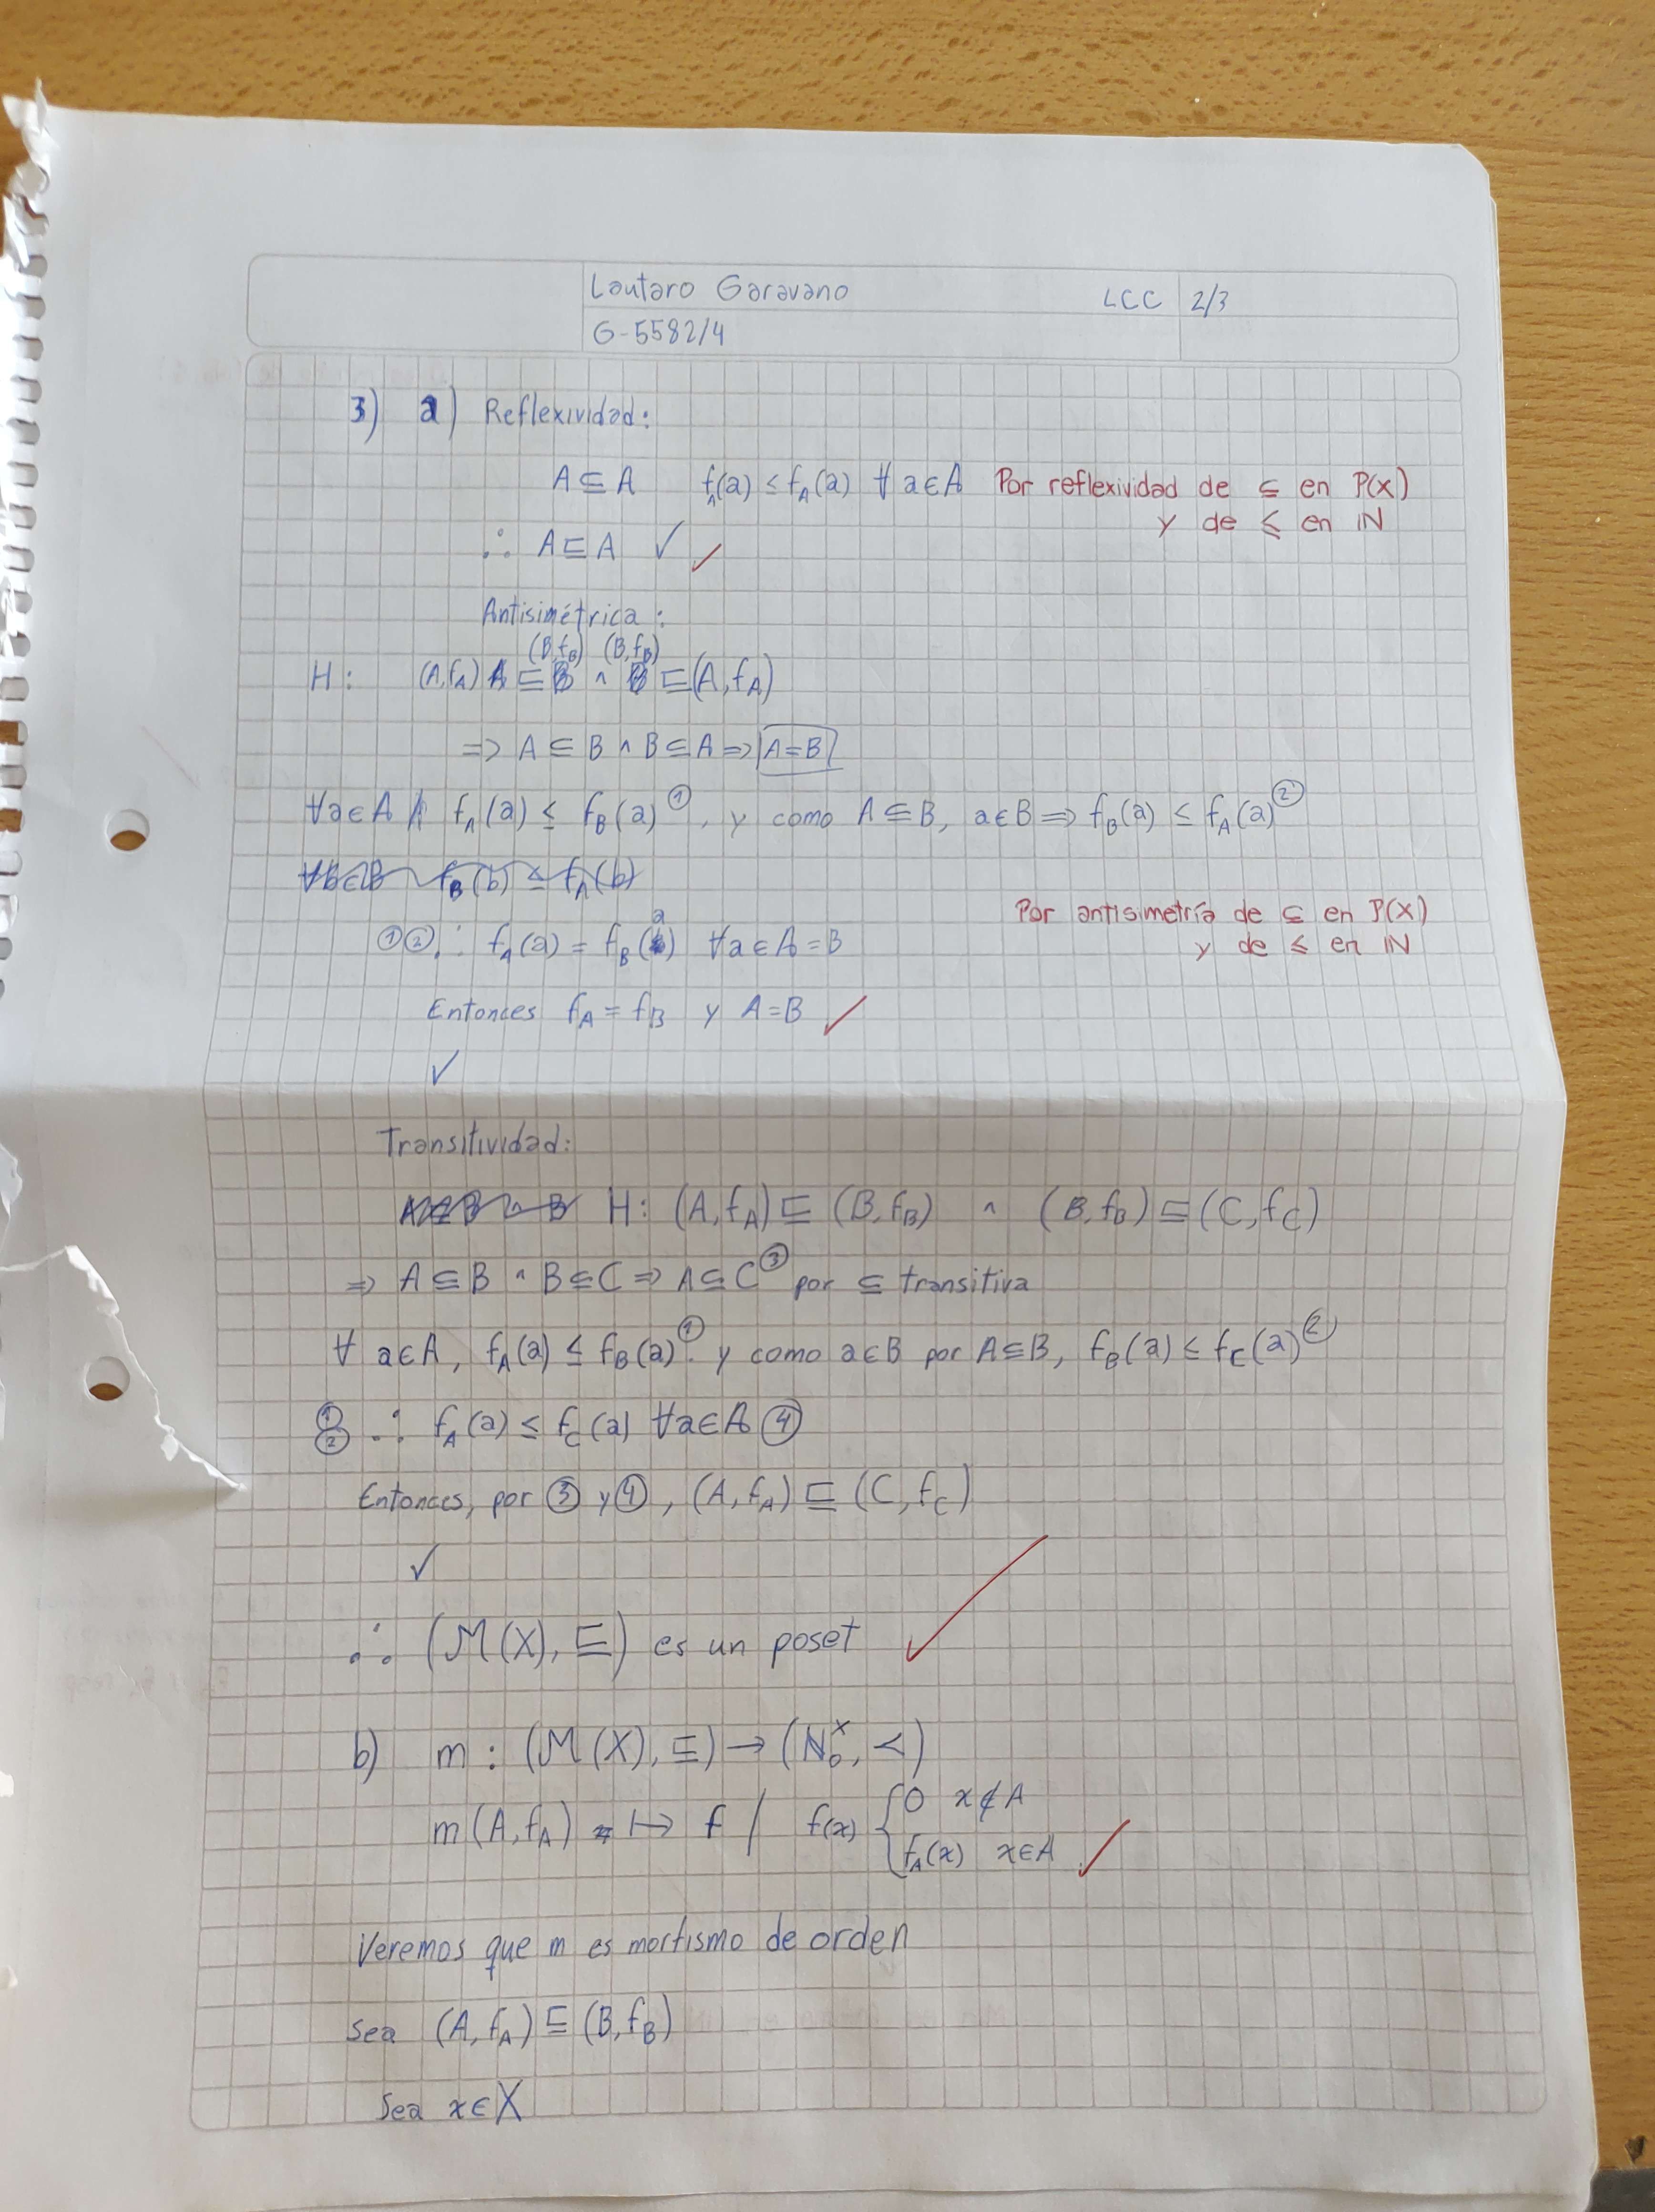 Lautaro Garavano LCC 2/3
G-5582/4
3) a) Reflexividad:
A ⊆ A f_A(a) ≤ f_A(a) ∀ a ∈ A Por reflexividad de ⊆ en P(X)
y de ≤ en ℕ
∴ A ⊑ A ✓ ✓
Antisimétrica:
(B,f_B) (B,f_B)
H: (A,f_A) ⊑ ∧ ⊑ (A,f_A)
=> A ⊆ B ∧ B ⊆ A => A=B
∀a∈A f_A(a) ≤ f_B(a) ①, y como A ⊆ B, a∈B => f_B(a) ≤ f_A(a) ②
∀b∈B f_B(b) ≤ f_A(b)
Por antisimetría de ⊆ en P(X)
①② ∴ f_A(a) = f_B(a) ∀a∈A=B y de ≤ en ℕ
Entonces f_A = f_B y A=B ✓
✓
Transitividad:
H: (A,f_A) ⊑ (B,f_B) ∧ (B,f_B) ⊑ (C,f_C)
=> A ⊆ B ∧ B ⊆ C => A ⊆ C ③ por ⊆ transitiva
∀ a∈A, f_A(a) ≤ f_B(a) ① y como a∈B por A⊆B, f_B(a) ≤ f_C(a) ②
① ② ∴ f_A(a) ≤ f_C(a) ∀a∈A ④
Entonces, por ③ y ④, (A,f_A) ⊑ (C,f_C)
✓
∴ (M(X), ⊑) es un poset ✓
b) m : (M(X), ⊑) → (ℕ₀^X, ≺)
m(A,f_A) ↦ f / f(x) { 0 x∉A
f_A(x) x∈A ✓
Veremos que m es morfismo de orden
sea (A,f_A) ⊑ (B,f_B)
Sea x∈X